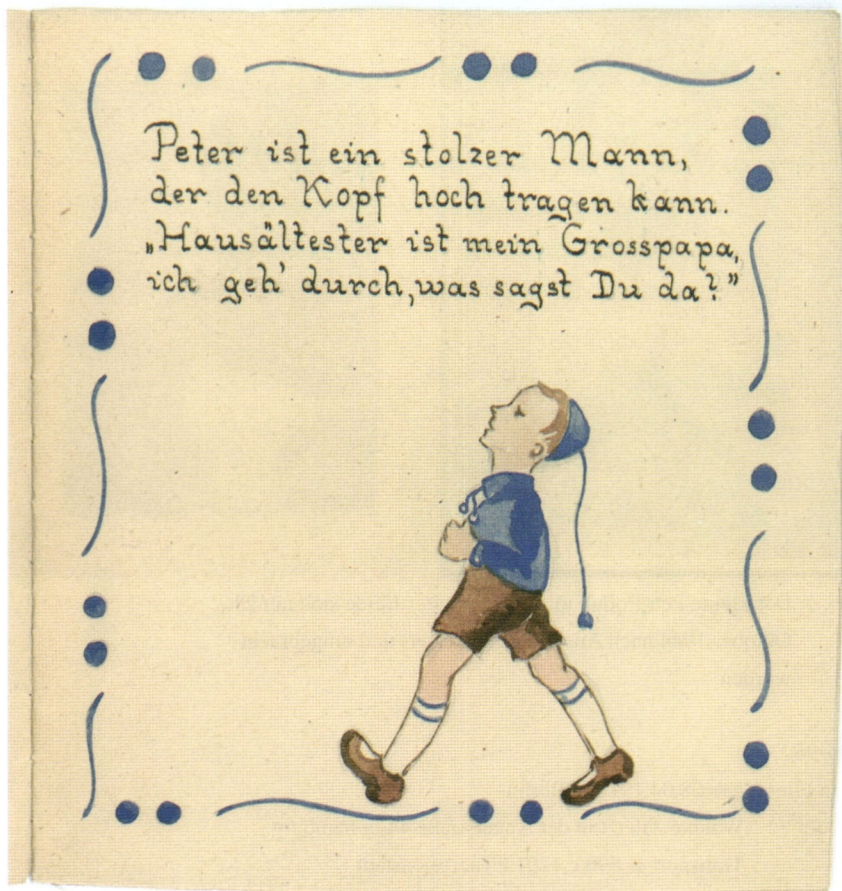 Peter ist ein stolzer Mann,
der den Kopf hoch tragen kann.
„Hausältester ist mein Grosspapa,
ich geh' durch, was sagst Du da?”